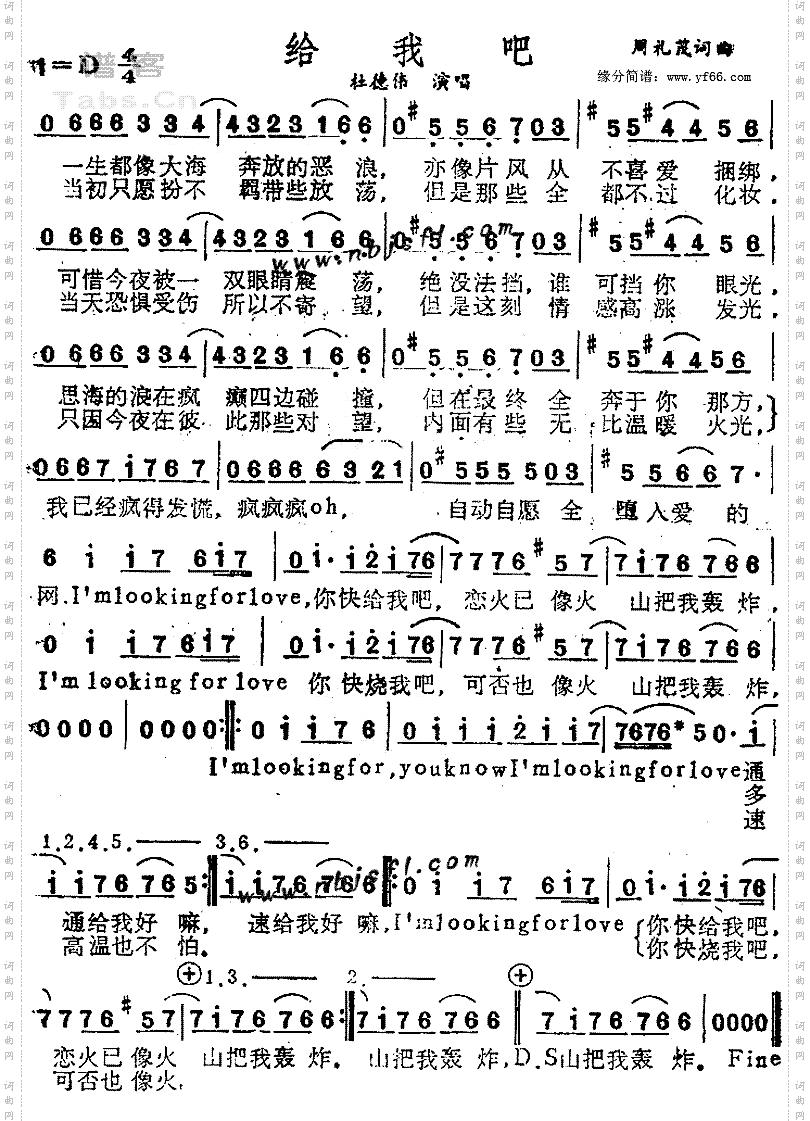 给 我 吧
周礼茂词曲
1=D 4/4
杜德伟 演唱
缘分简谱：www.yf66.com
谱客
Tabs.Cn
0 6 6 6 3 3 3 4 | 4 3 2 3 1 6 6 | 0 #5 5 6 7 0 3 | #5 5 #4 4 5 6 |
一生都像大海 奔放的恶 浪， 亦像片风 从 不喜爱 捆绑，
当初只愿扮不 羁带些放 荡， 但是那些 全 都不过 化妆，
0 6 6 6 3 3 4 | 4 3 2 3 1 6 6 | 0 #5 5 6 7 0 3 | #5 5 #4 4 5 6 |
www.nbjcfl.com
可惜今夜被一 双眼睛震 荡， 绝没法挡，谁 可挡你 眼光，
当天恐惧受伤 所以不寄 望， 但是这刻 情 感高涨 发光，
0 6 6 6 3 3 3 4 | 4 3 2 3 1 6 6 | 0 #5 5 6 7 0 3 | #5 5 #4 4 5 6
思海的浪在疯 癫四边碰 撞， 但在最终 全 奔于你 那方，
只因今夜在彼 此那些对 望， 内面有些 无 比温暖 火光，
0 6 6 7 i 7 6 7 | 0 6 6 6 6 3 2 1 | 0 #5 5 5 5 0 3 | #5 5 6 6 7 ·
我已经疯得发慌，疯疯疯oh， 自动自愿 全 堕入爱 的
6 i i 7 6 i 7 | 0 i · i 2 i 7 6 | 7 7 7 6 #5 7 | 7 i 7 6 7 6 6
网.I'mlookingforlove,你快给我吧， 恋火已 像火 山把我轰 炸，
0 i i 7 6 i 7 | 0 i · i 2 i 7 6 | 7 7 7 6 #5 7 | 7 i 7 6 7 6 6
I'm looking for love 你 快烧我吧，可否也 像火 山把我轰 炸，
0 0 0 0 | 0 0 0 0 :‖: 0 i i 7 6 | 0 i i i i 2 i i 7 | 7 6 7 6 * 5 0 · i
I'mlookingfor,youknowI'mlookingforlove通
多
速
1.2.4.5. 3.6.
i i 7 6 7 6 5 :‖ i i 7 6 7 6 6 :‖: 0 i i 7 6 i 7 | 0 i · i 2 i 7 6
www.nbjcfl.com
通给我好 嘛， 速给我好 嘛,I'mlookingforlove 你快给我吧，
高温也不 怕。 你快烧我吧，
⊕1.3. 2. ⊕
7 7 7 6 #5 7 | 7 i 7 6 7 6 6 :‖ 7 i 7 6 7 6 6 ‖ 7 i 7 6 7 6 6 | 0 0 0 0 ‖
恋火已 像火 山把我轰 炸。 山把我轰 炸，D.S山把我轰 炸。 Fine
可否也 像火
词曲网